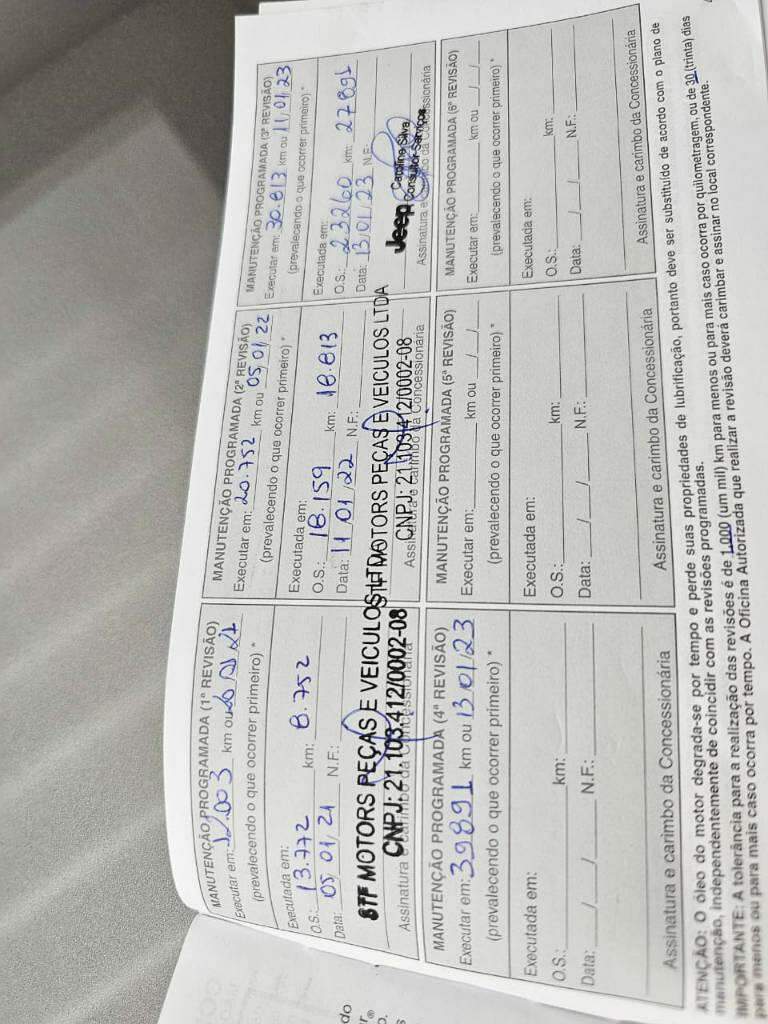 MANUTENÇÃO PROGRAMADA (1ª REVISÃO)
Executar em: 12.003 km ou
(prevalecendo o que ocorrer primeiro) *
Executada em:
O.S.: 13.772 km: 8.752
Data: 05/01/21 N.F.:
STF MOTORS PEÇAS E VEICULOS LTDA
CNPJ: 21.103.412/0002-08
Assinatura e carimbo da Concessionária
MANUTENÇÃO PROGRAMADA (2ª REVISÃO)
Executar em: 20.752 km ou 05/01/22
(prevalecendo o que ocorrer primeiro) *
Executada em:
O.S.: 18.159 km: 18.813
Data: 11/01/22 N.F.:
STF MOTORS PEÇAS E VEICULOS LTDA
CNPJ: 21.103.412/0002-08
Assinatura e carimbo da Concessionária
MANUTENÇÃO PROGRAMADA (3ª REVISÃO)
Executar em: 30.813 km ou 11/01/23
(prevalecendo o que ocorrer primeiro) *
Executada em:
O.S.: 23260 km: 27891
Data: 13/01/23 N.F.:
Jeep Caroline Silva
Consultor Serviços
Assinatura e carimbo da Concessionária
MANUTENÇÃO PROGRAMADA (4ª REVISÃO)
Executar em: 39891 km ou 13/01/23
(prevalecendo o que ocorrer primeiro) *
Executada em:
O.S.: km:
Data: / / N.F.:
Assinatura e carimbo da Concessionária
MANUTENÇÃO PROGRAMADA (5ª REVISÃO)
Executar em: km ou / /
(prevalecendo o que ocorrer primeiro) *
Executada em:
O.S.: km:
Data: / / N.F.:
Assinatura e carimbo da Concessionária
MANUTENÇÃO PROGRAMADA (6ª REVISÃO)
Executar em: km ou / /
(prevalecendo o que ocorrer primeiro) *
Executada em:
O.S.: km:
Data: / / N.F.:
Assinatura e carimbo da Concessionária
ATENÇÃO: O óleo do motor degrada-se por tempo e perde suas propriedades de lubrificação, portanto deve ser substituído de acordo com o plano de
manutenção, independentemente de coincidir com as revisões programadas.
IMPORTANTE: A tolerância para a realização das revisões é de 1.000 (um mil) km para menos ou para mais caso ocorra por quilometragem, ou de 30 (trinta) dias
para menos ou para mais caso ocorra por tempo. A Oficina Autorizada que realizar a revisão deverá carimbar e assinar no local correspondente.